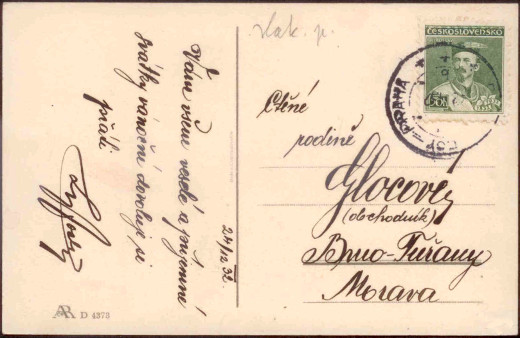 vlak. p.
Vám všem veselé a příjemné
svátky vánoční dovoluji si
přáti
24/12 32
AR D 4373
ČESKOSLOVENSKO
PRAHA
Ctěné
rodině
Glocově
(obchodník)
Brno-Tuřany
Morava